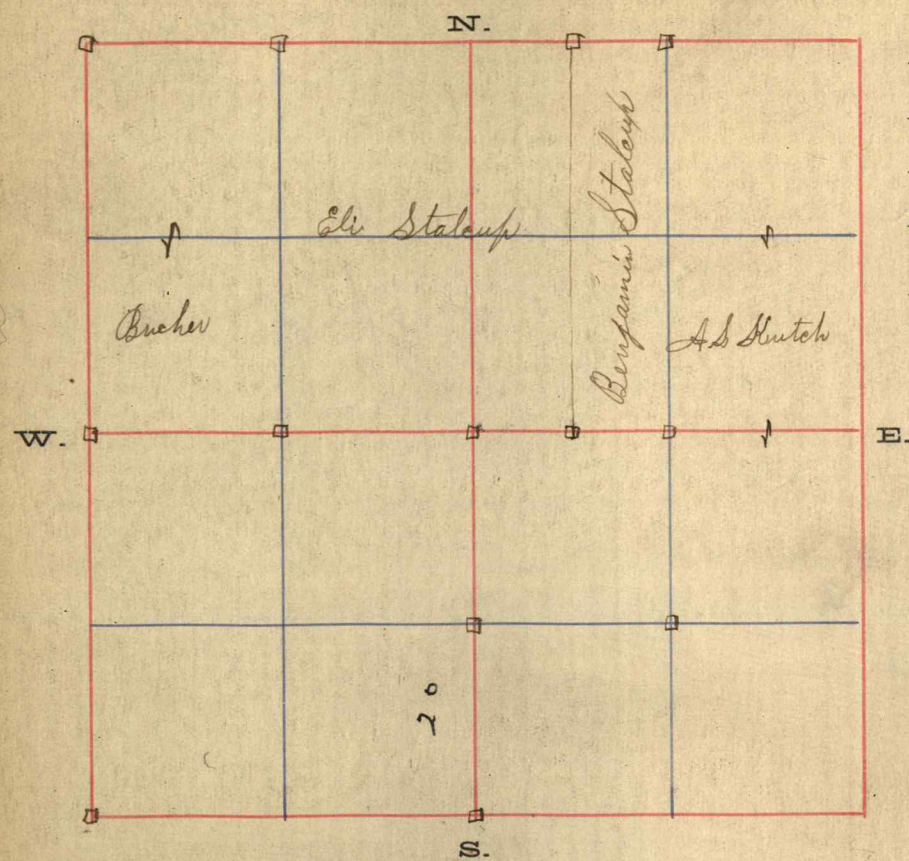 N.
Eli Stalcup
Benjamin Stalcup
Bucher
A S Kutch
W.
E.
20
S.